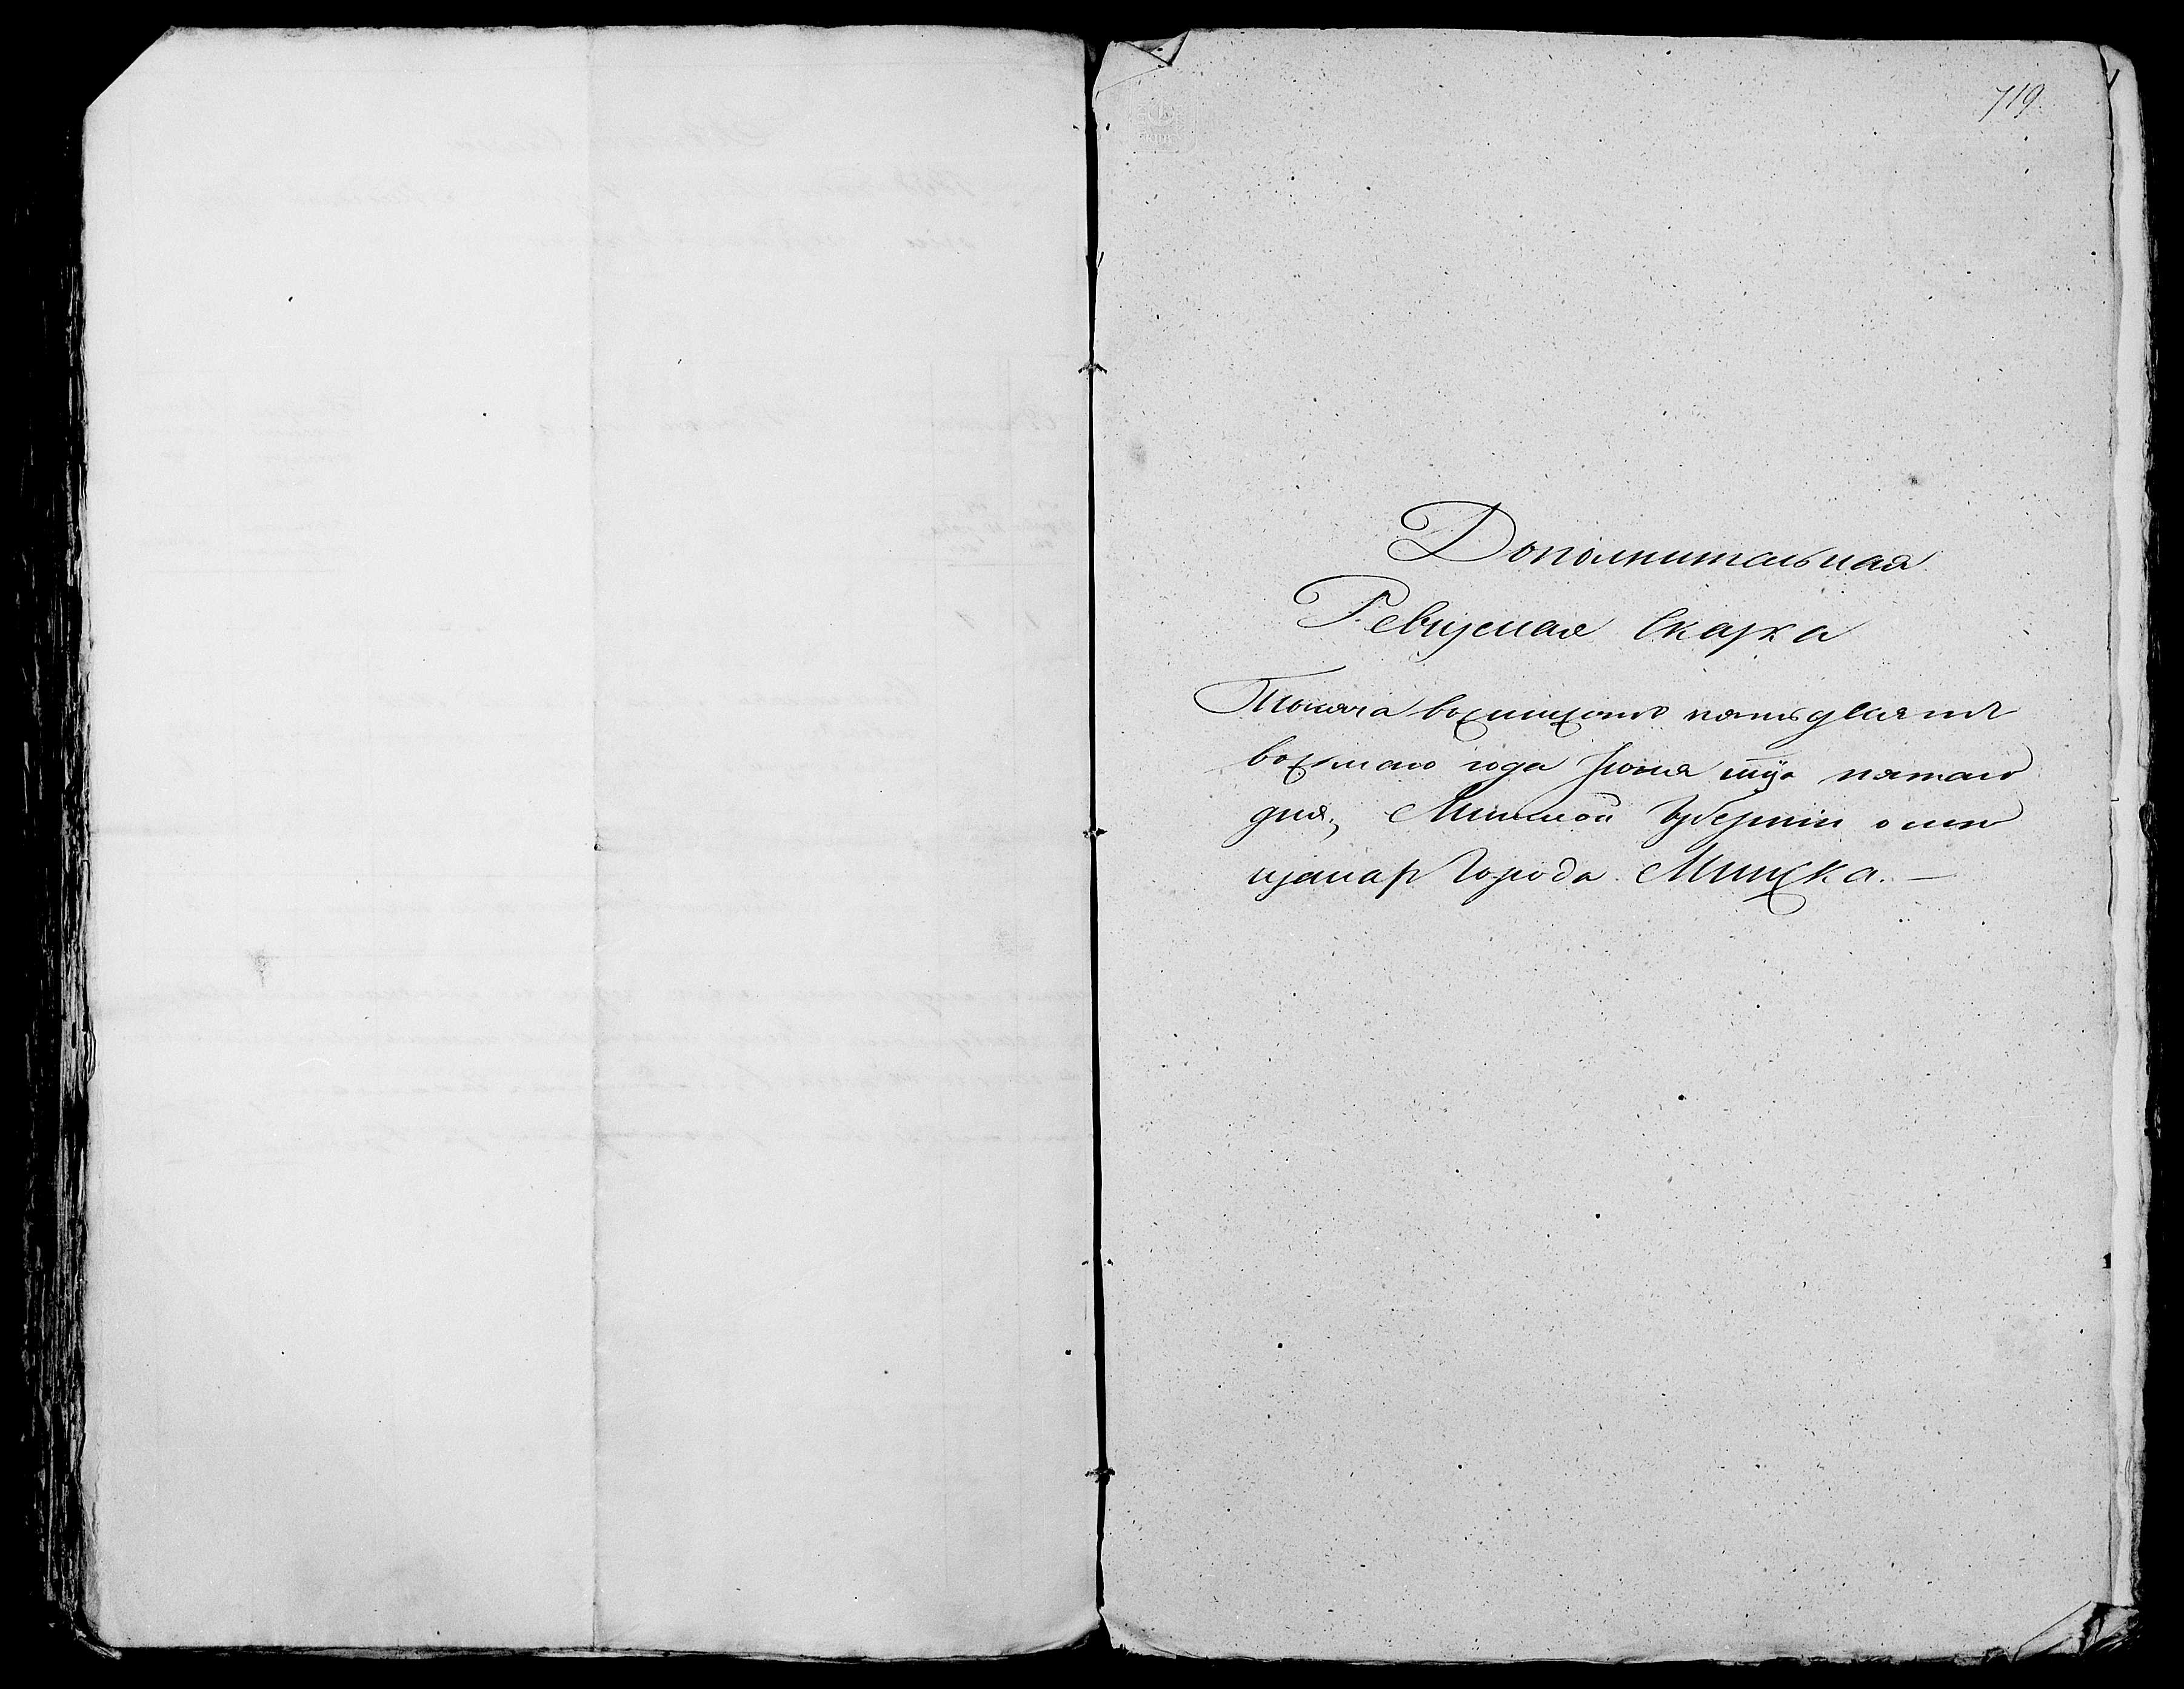 719.
Дополнительная
Ревизская Сказка
Тысяча восемьсотъ пятьдесятъ
восьмаго года Іюня пятаго
дня, Минской Губерніи о мѣ
щанахъ Города Минска. —